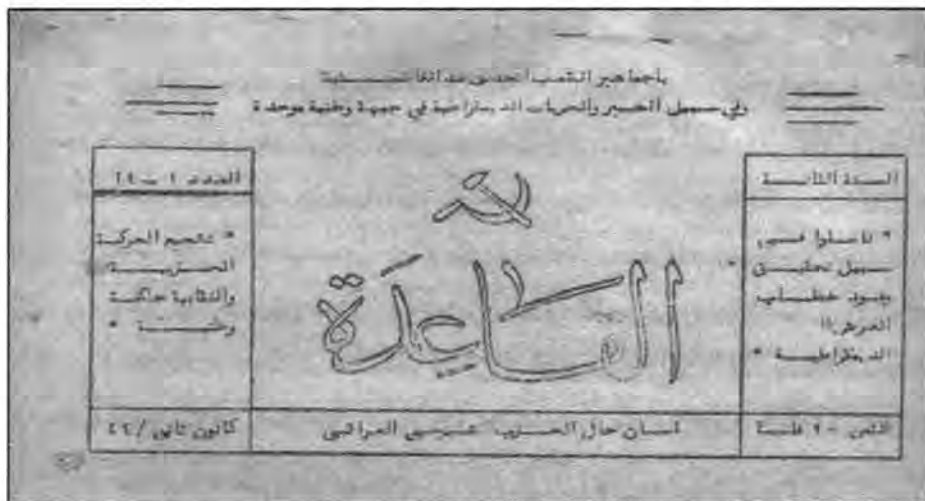 ياجماهير الشعب اتحدي ضد الفاشستية
وفي سبيل الخبز والحريات الديمقراطية في جبهة وطنية موحدة
السنة الثانية
* ناضلوا في
سبيل تحقيق
بنود خطاب
العرش
الديمقراطية *
القاعدة
العدد
* تنظيم الحركة
الحزبية
والنقابية حاجة
وطنية *
الثمن
لسان حال الحزب الشيوعي العراقي
كانون ثاني /